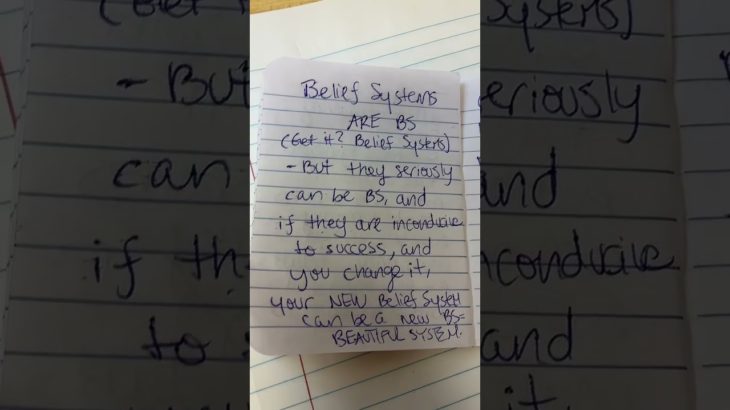 Belief Systems
ARE BS
(Get it? Belief Systems)
- But they seriously
can be BS, and
if they are inconducive
to success, and
you change it,
your NEW Belief System
can be a new BS=
BEAUTIFUL SYSTEM.